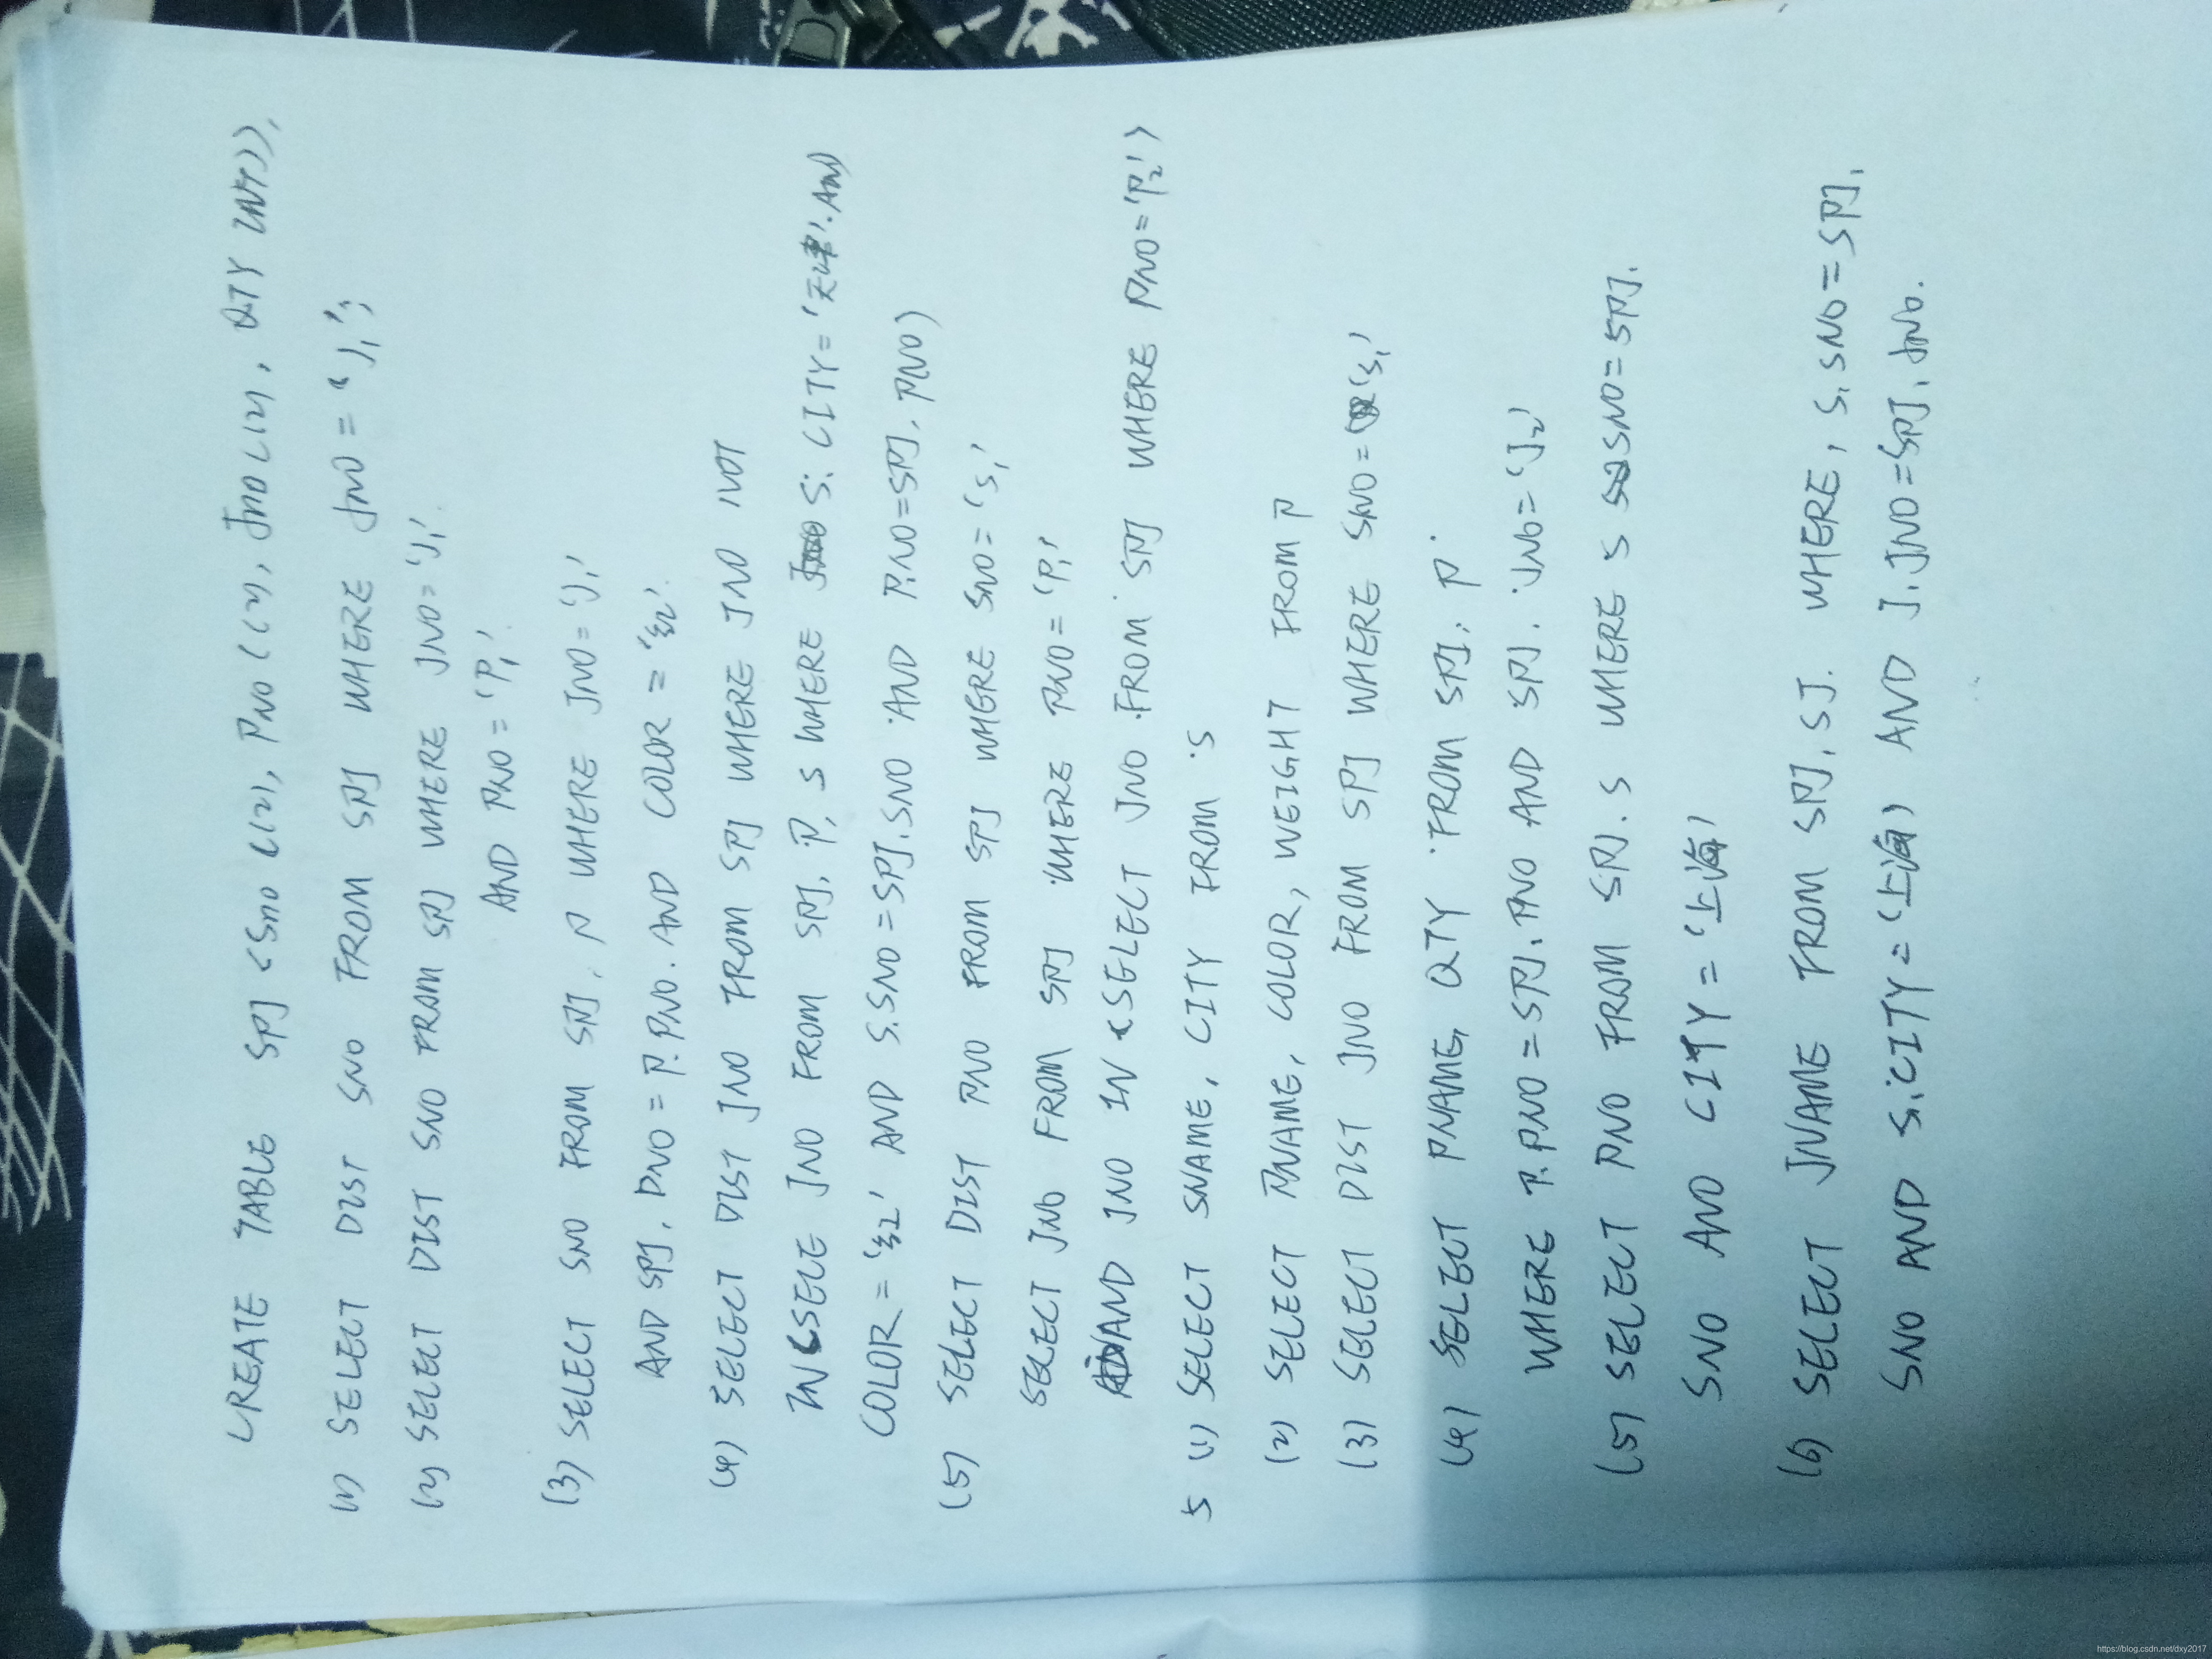 CREATE TABLE SPJ (SNO C(2), PNO (C2), JNO C(2), QTY INT)),
(1) SELECT DIST SNO FROM SPJ WHERE JNO = 'J1';
(2) SELECT DIST SNO FROM SPJ WHERE JNO='J1'
AND PNO='P1'.
(3) SELECT SNO FROM SPJ, P WHERE JNO='J1'
AND SPJ. PNO = P.PNO. AND COLOR = '红'.
(4) SELECT DIST JNO FROM SPJ WHERE JNO NOT
IN (SELE JNO FROM SPJ, P, S WHERE S. CITY='天津'. AND
COLOR='红' AND S.SNO=SPJ.SNO AND P.NO=SPJ.PNO)
(5) SELECT DIST PNO FROM SPJ WHERE SNO='S1'
SELECT JNO FROM SPJ WHERE PNO='P1'
AND JNO IN (SELECT JNO FROM SPJ WHERE PNO='P2')
5 (1) SELECT SNAME, CITY FROM S
(2) SELECT PNAME, COLOR, WEIGHT FROM P
(3) SELECT DIST JNO FROM SPJ WHERE SNO='S1'
(4) SELECT PNAME, QTY FROM SPJ, P
WHERE P.PNO = SPJ.PNO AND SPJ. JNO='J2'
(5) SELECT PNO FROM SPJ. S WHERE S SNO=SPJ.
SNO AND CITY='上海'
(6) SELECT JNAME FROM SPJ, SJ. WHERE, S.SNO=SPJ.
SNO AND S.CITY='上海' AND J.JNO=SPJ.JNO.
https://blog.csdn.net/dxy2017